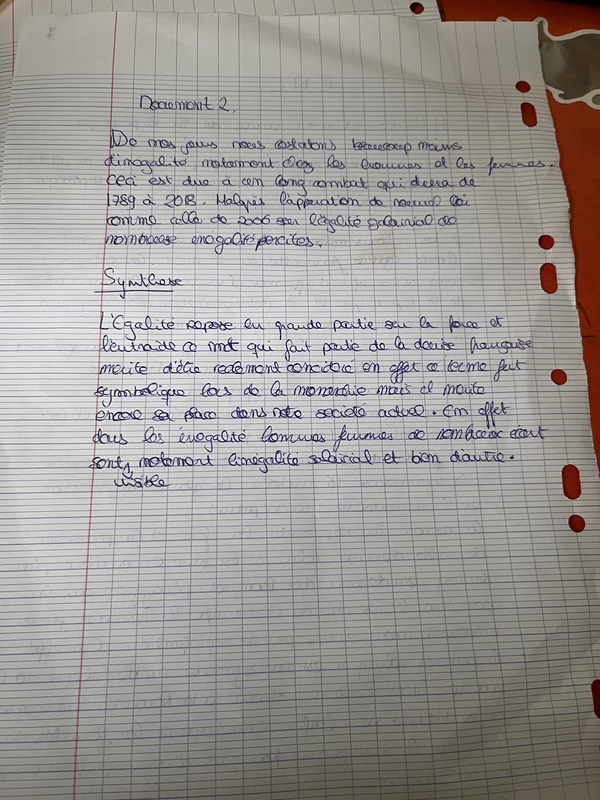 Document 2.
De nos jours nous constatons beaucoup moins
d'inégalité notament chez les hommes et les femmes.
Ceci est due à un long combat qui dura de
1789 à 2018. Malgrès l'apparation de nouvel loi
comme celle de 2006 sur l'égalité salairial de
nombreuse enogalité persites.
Synthese
L'Egalité repose en grande partie sur la force et
l'entraide ce mot qui fait partie de la devise française
mérite d'être reelement en effet ce terme fut
symbolique lors de la monarchie mais il mérite
encore sa place dans notre societé actuel. En effet
dans les inégalité hommes femmes de nombreux écart
sont, notament l'inégalité salairial et bien d'autre.
visible